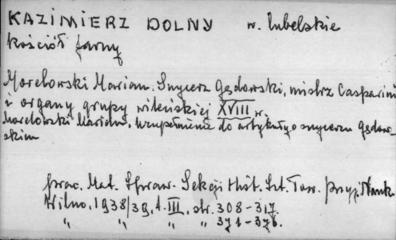 KAZIMIERZ DOLNY w. lubelskie
kościół farny
Morelowski Marian. Snycerz Gędowski, mistrz Casparini
i organy grupy wileńskiej XVIII w.
Morelowski Marian. Uzupełnienie do artykułu o snycerzu Gędow-
skim
prac. Mat. Spraw. Sekcji Hist. Szt. Tow. Przyj. Nauk
Wilno, 1938/39, t. III, str. 308-317.
" " " " 371-376.